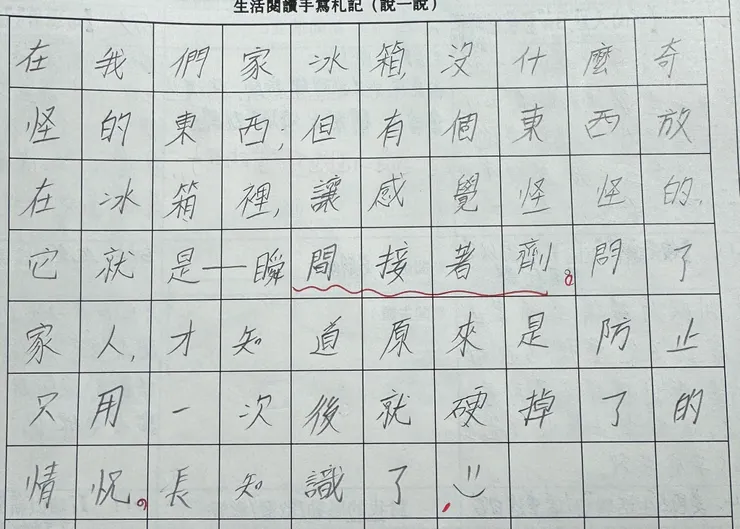 生活閱讀手寫札記（說一說）
在我們家冰箱,沒什麼奇
怪的東西;但有個東西放
在冰箱裡,讓感覺怪怪的,
它就是——瞬間接著劑。問了
家人,才知道原來是防止
只用一次後就硬掉了的
情況,長知識了,